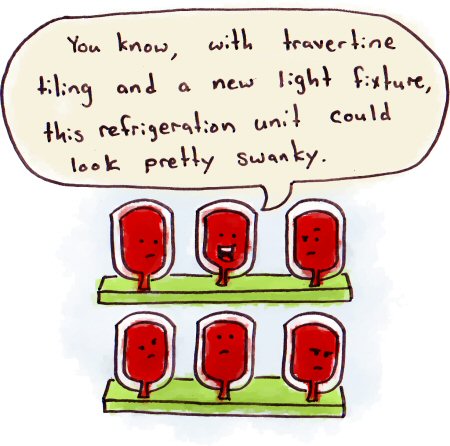 You know, with travertine
tiling and a new light fixture,
this refrigeration unit could
look pretty swanky.